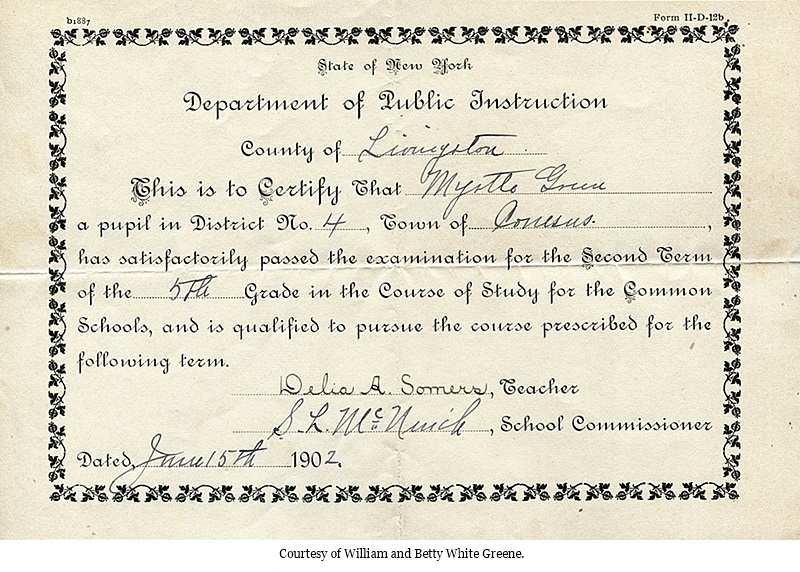 b1887 Form II-D-12b
State of New York
Department of Public Instruction
County of Livingston
This is to Certify That Myrtle Green
a pupil in District No. 4, Town of Conesus.,
has satisfactorily passed the examination for the Second Term
of the 5th Grade in the Course of Study for the Common
Schools, and is qualified to pursue the course prescribed for the
following term.
Delia A. Somers, Teacher
S. L. McNinch, School Commissioner
Dated, June 15th 1902.
Courtesy of William and Betty White Greene.